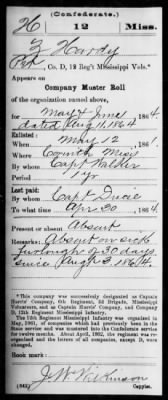 (Confederate.)
H 12 Miss.
Z Hardy
Pvt, Co. D, 12 Reg't Mississippi Vols.*
Appears on
Company Muster Roll
of the organization named above,
for May & June, 1864.
dated Aug 11, 1864
Enlisted:
When May 12, 186
Where Corinth Miss
By whom Capt
Period 1 yr
Last paid:
By whom Capt
To what time Apr 30, 1864
Present or absent Absent
Remarks: Absent on sick
furlough of 30 days
since Aug 3 1864.
*This company was successively designated as Captain
Company, 6th Regiment, 2d Brigade, Mississippi
Volunteers, and as Captain Harris' Company and Company
D, 12th Regiment Mississippi Infantry.
The 12th Regiment Mississippi Infantry was organized in
May, 1861, of companies which had previously been in the
State service and was mustered into the Confederate service
for twelve months. About April, 1862, the regiment was re-
organized and the letters of all companies, except D, were
changed.
Book mark:
(642)
Copyist.